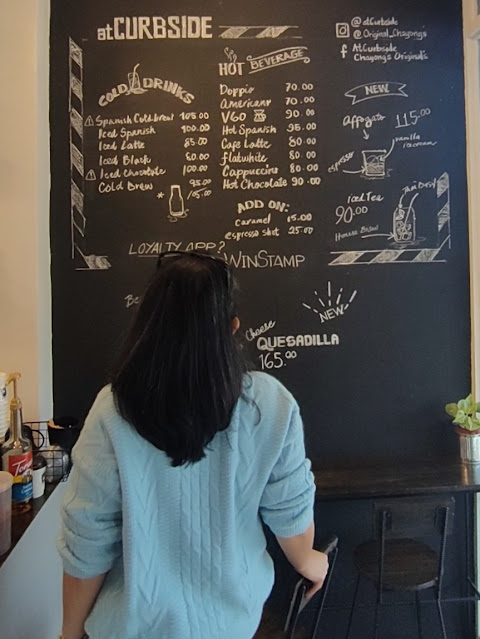 atCURBSIDE
@atCurbside
@Original_Chayong's
AtCurbside
Chayong's Original's
HOT BEVERAGE
Doppio 70.00
Americano 70.00
V60 90.00
Hot Spanish 95.00
Cafe Latte 80.00
flatwhite 80.00
Cappuccino 80.00
Hot Chocolate 90.00
ADD ON:
caramel 15.00
espresso shot 25.00
COLD DRINKS
Spanish Coldbrew 105.00
Iced Spanish 100.00
Iced Latte 85.00
Iced Black 80.00
Iced Chocolate 100.00
Cold Brew 95.00
*
/105.00
NEW
affogato 115.00
vanilla icecream
espresso
iced Tea
90.00
House Brew
LOYALTY APP?
WINSTAMP
NEW
Cheese
QUESADILLA
165.00